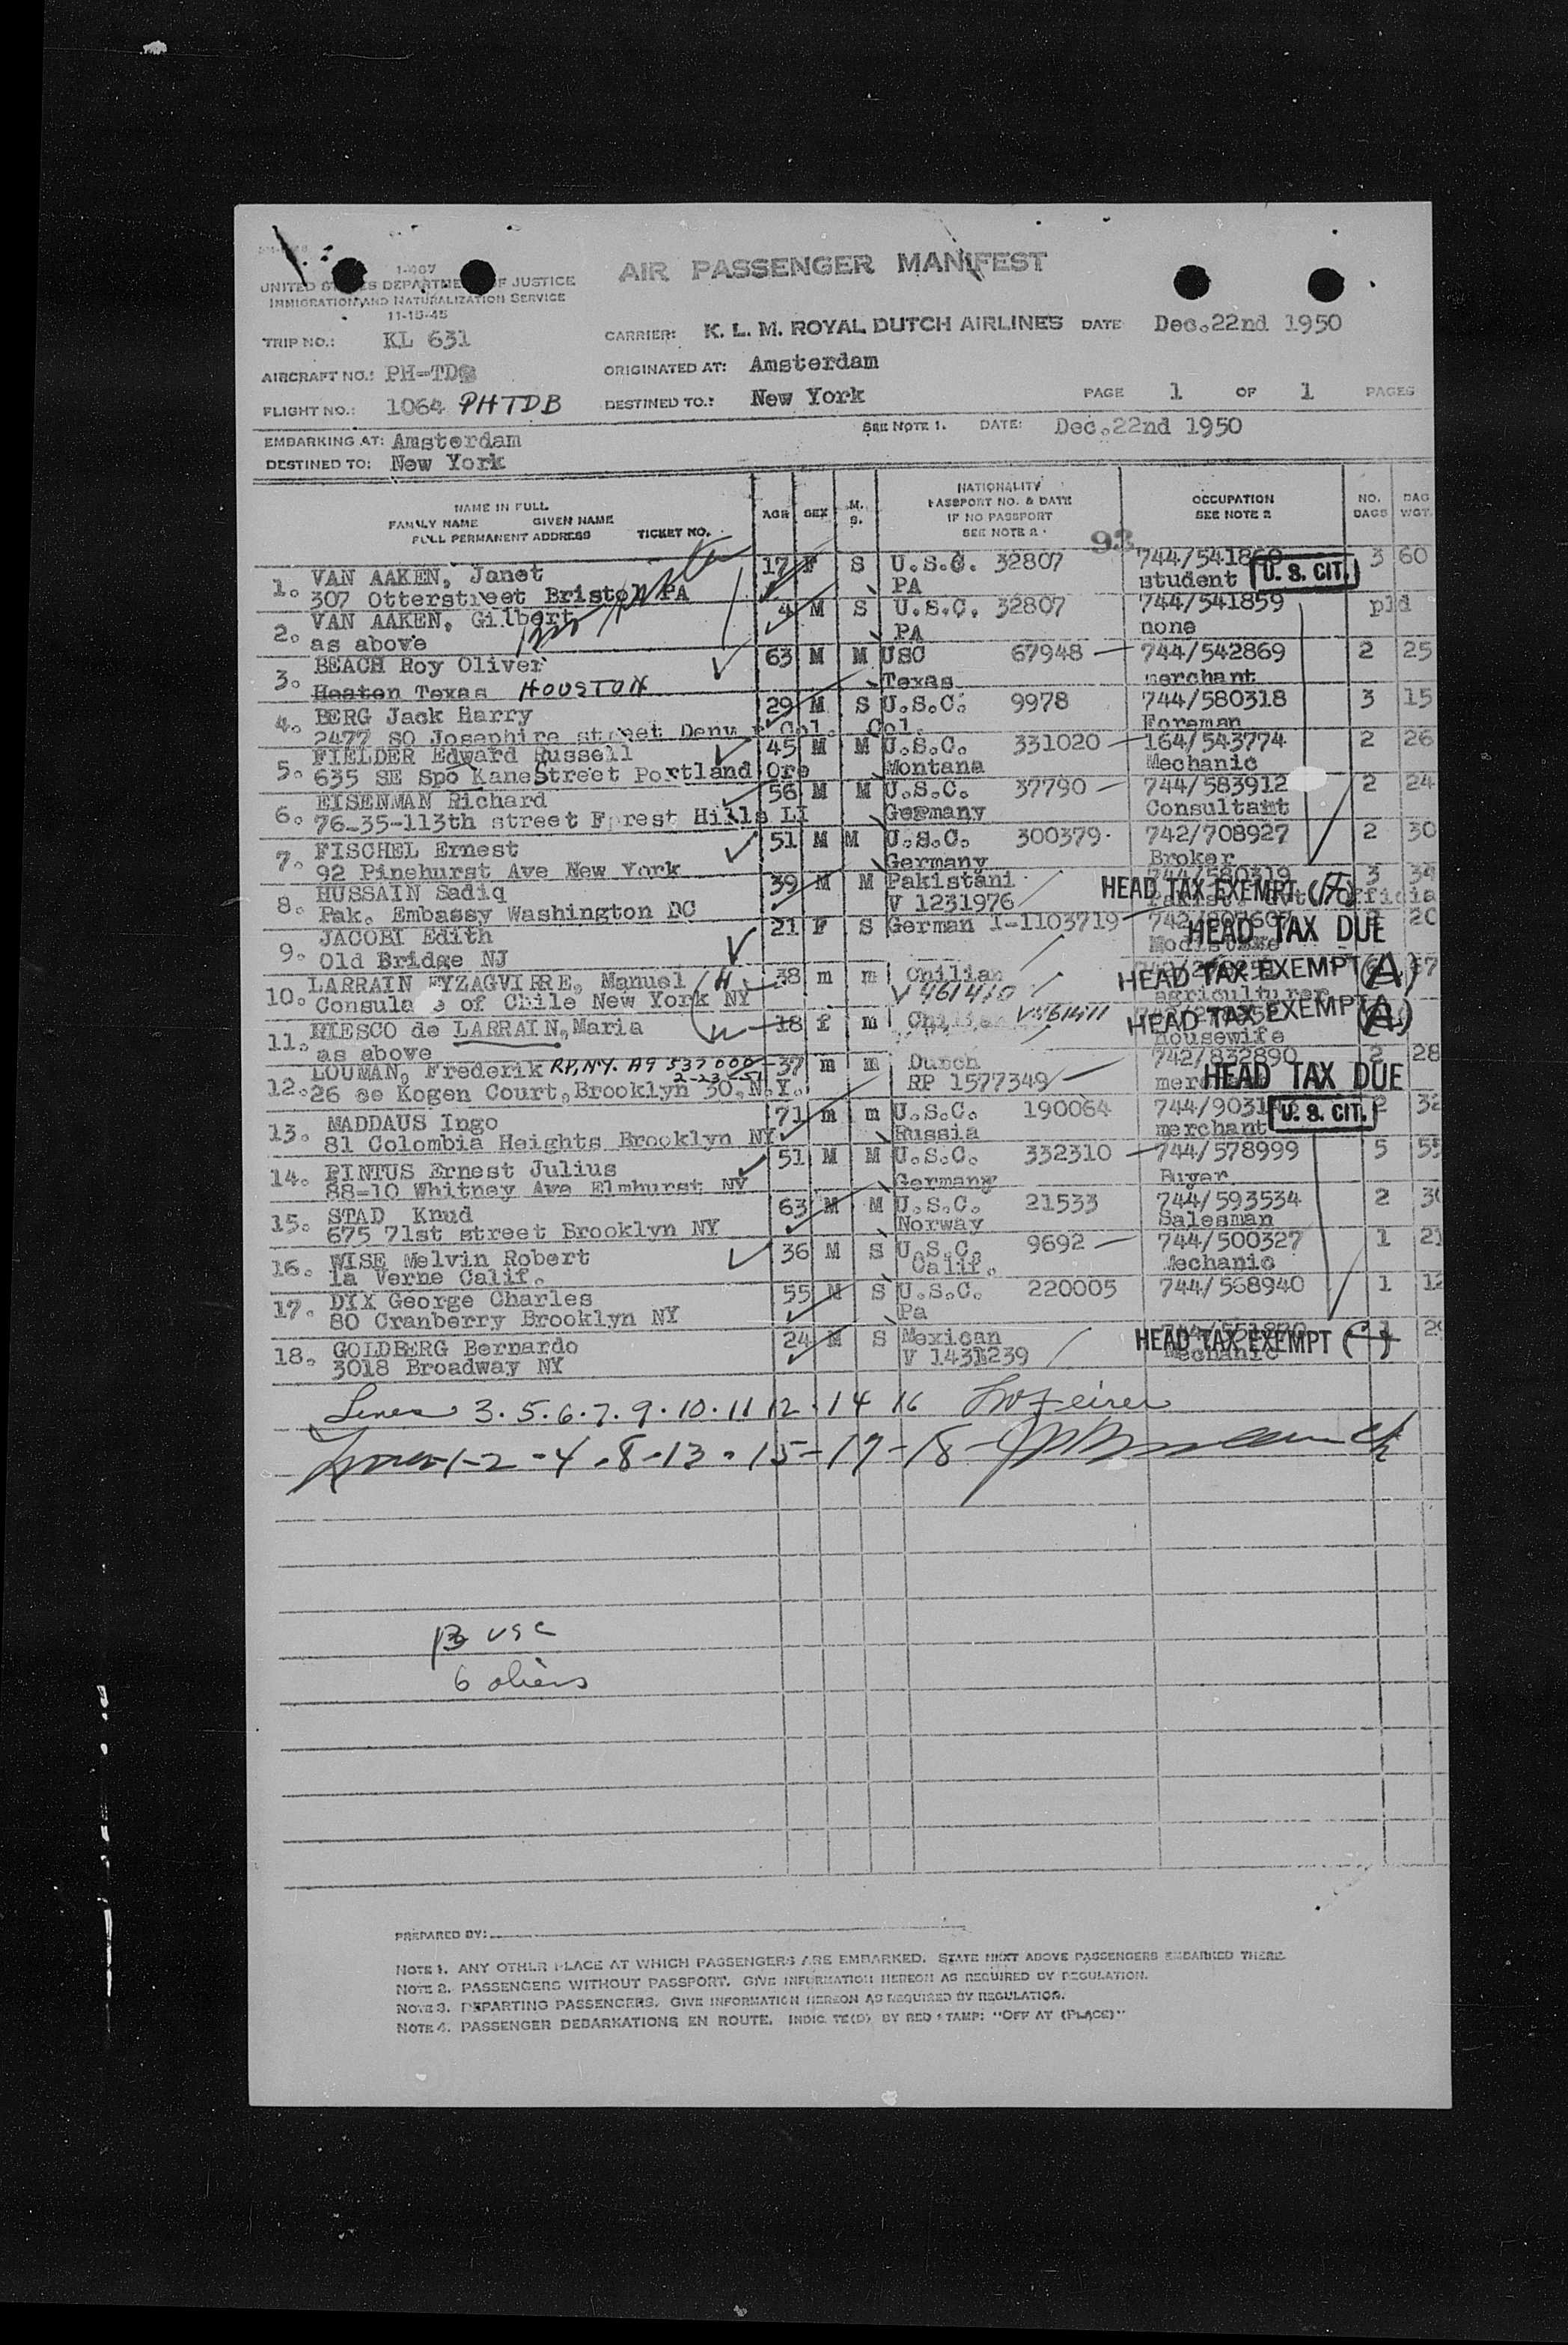 1-467
UNITED STATES DEPARTMENT OF JUSTICE
IMMIGRATION AND NATURALIZATION SERVICE
11-15-45
AIR PASSENGER MANIFEST
TRIP NO.: KL 631 CARRIER: K. L. M. ROYAL DUTCH AIRLINES DATE Dec.22nd 1950
AIRCRAFT NO.: PH-TD ORIGINATED AT: Amsterdam
FLIGHT NO.: 1064 PHTDB DESTINED TO.: New York PAGE 1 OF 1 PAGES
EMBARKING AT: Amsterdam SEE NOTE 1. DATE: Dec.22nd 1950
DESTINED TO: New York
NAME IN FULL
FAMILY NAME GIVEN NAME
FULL PERMANENT ADDRESS TICKET NO.
AGE SEX M. S.
NATIONALITY
PASSPORT NO. & DATE
IF NO PASSPORT
SEE NOTE 2
OCCUPATION
SEE NOTE 2
NO. BAGS BAG WGT.
93
1. VAN AAKEN, Janet 17 F S U.S.C. 32807 744/541860 3 60
307 Otterstreet Bristol PA PA student U. S. CIT.
2. VAN AAKEN, Gilbert 4 M S U.S.C. 32807 744/541859 pld
as above PA none
3. BEACH Roy Oliver 63 M M USC 67948 744/542869 2 25
Heaten Texas HOUSTON Texas merchant
4. BERG Jack Harry 29 M S U.S.C. 9978 744/580318 3 15
2477 SO Josephire street Denv r Col. Col. Foreman
5. FIELDER Edward Russell 45 M M U.S.C. 331020 164/543774 2 26
635 SE Spo KaneStreet Portland Ore Montana Mechanic
6. EISENMAN Richard 56 M M U.S.C. 37790 744/583912 2 24
76-35-113th street Forest Hills LI Germany Consultant
7. FISCHEL Ernest 51 M M U.S.C. 300379 742/708927 2 30
92 Pinehurst Ave New York Germany Broker
8. HUSSAIN Sadiq 39 M M Pakistani 744/580319 3 34
Pak. Embassy Washington DC V 1231976 HEAD TAX EXEMPT
9. JACOBI Edith 21 F S German I-1103719 20
Old Bridge NJ HEAD TAX DUE
10. LARRAIN EYZAGVIRRE, Manuel 38 m m Chilian 57
Consulate of Chile New York NY V 461410 agriculturer HEAD TAX EXEMPT (A)
11. RIESCO de LARRAIN,Maria 18 f m V461411
as above housewife HEAD TAX EXEMPT (A)
12. LOUMAN, Frederik RP,NY. A9 537 000 37 m m Dutch 742/832890 2 28
2-23-51
26 Se Kogen Court,Brooklyn 30,N.Y. RP 1577349 HEAD TAX DUE
13. MADDAUS Ingo 71 m m U.S.C. 190064 2 32
81 Colombia Heights Brooklyn NY Russia merchant U. S. CIT.
14. PINTUS Ernest Julius 51 M M U.S.C. 332310 744/578999 5 55
88-10 Whitney Ave Elmhurst NY Germany Buyer
15. STAD Knud 63 M M U.S.C. 21533 744/593534 2
675 71st street Brooklyn NY Norway Salesman
16. WISE Melvin Robert 36 M S U.S.C. 9692 744/500327 1 21
la Verne Calif. Calif. Mechanic
17. DIX George Charles 55 M S U.S.C. 220005 744/568940 1 12
80 Cranberry Brooklyn NY Pa
18. GOLDBERG Bernardo 24 M S Mexican 1
3018 Broadway NY V 1431239 Mechanic HEAD TAX EXEMPT
Lines 3.5.6.7.9.10.11 12.14 16
Lines 1-2-4.8-13.15-17-18
13 USC
6 aliens
PREPARED BY:
NOTE 1. ANY OTHER PLACE AT WHICH PASSENGERS ARE EMBARKED. STATE NEXT ABOVE PASSENGERS EMBARKED THERE.
NOTE 2. PASSENGERS WITHOUT PASSPORT. GIVE INFORMATION HEREON AS REQUIRED BY REGULATION.
NOTE 3. DEPARTING PASSENGERS. GIVE INFORMATION HEREON AS REQUIRED BY REGULATION.
NOTE 4. PASSENGER DEBARKATIONS EN ROUTE. INDIC TE(D) BY RED STAMP: "OFF AT (PLACE)"